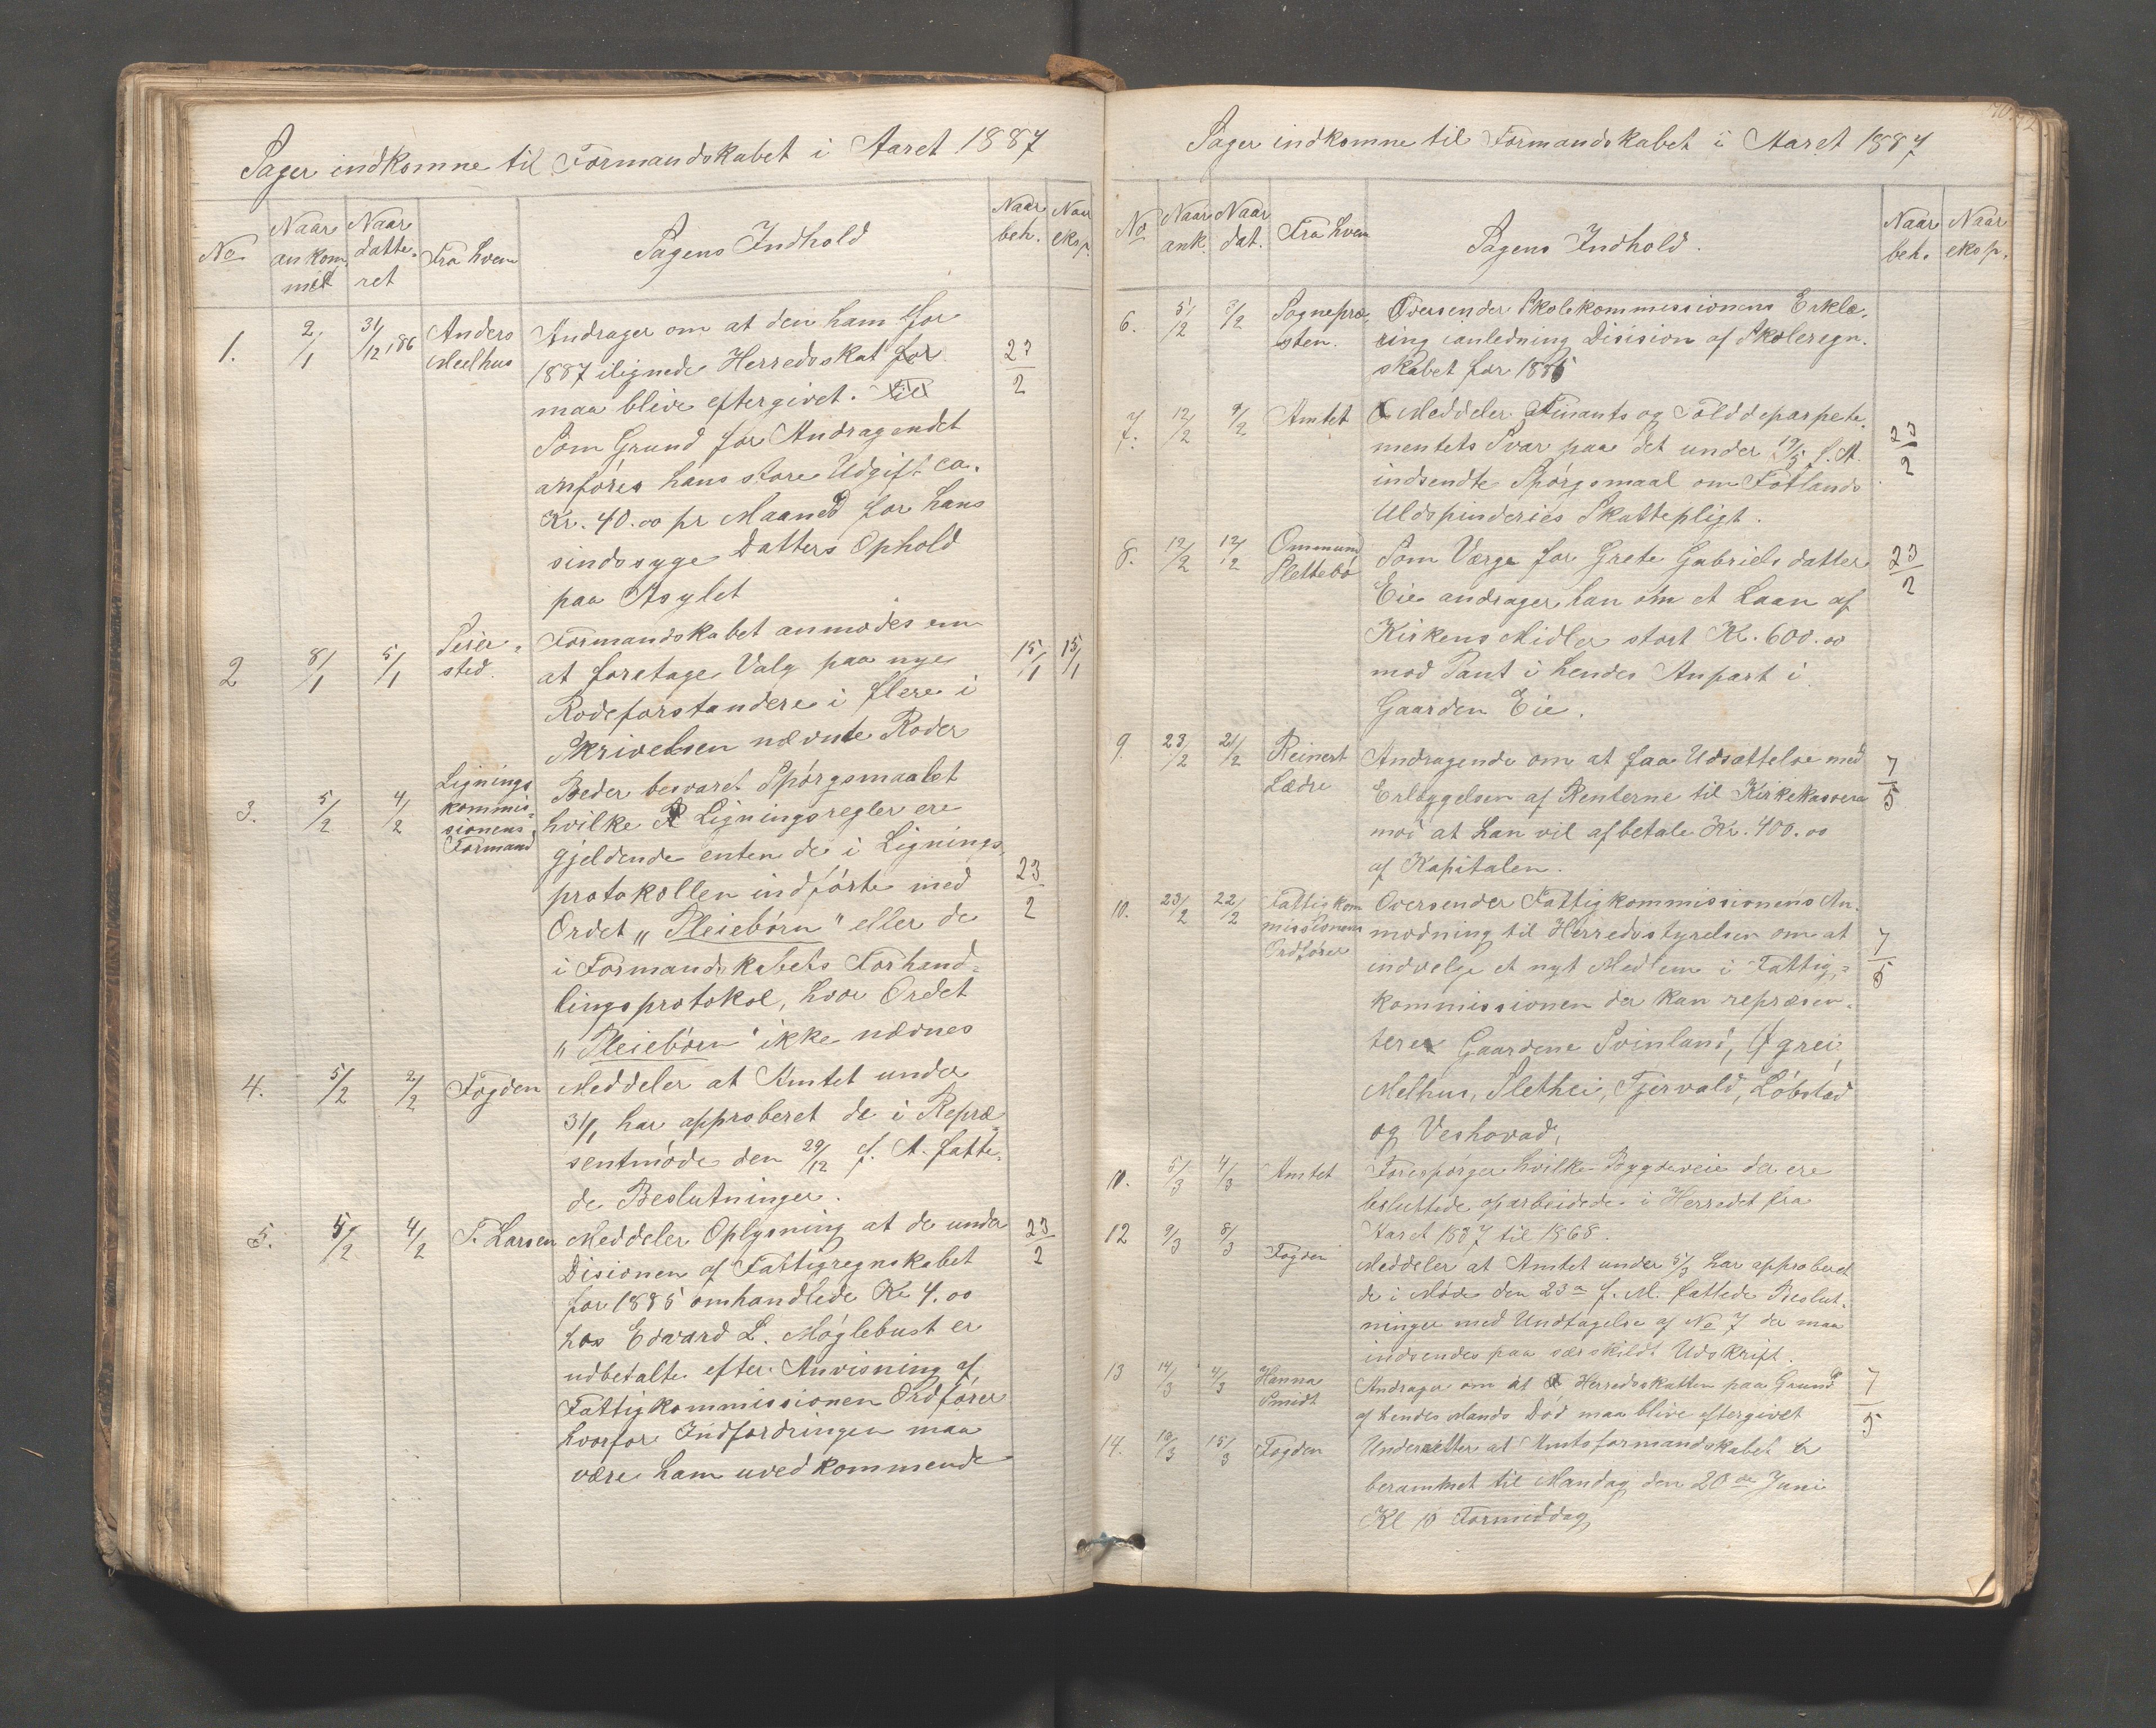 Sager indkomne til Formandskabet i Aaret 1887
No Naar ankommet Naar datteret Fra hvem Sagens Indhold Naar beh. Naar eksp.
1. 2/1 31/12 86 Anders Meelhus Andrager om at den ham for
1887 ilignede Herredsskat for 23/2
maa blive eftergivet.
Som Grund for Andragendet
anføres hans store Udgift ca.
Kr. 40.00 pr Maaned for hans
sindssyge Datters Ophold
paa Asylet
2 8/1 5/1 Formandskabet anmodes om
sted. at foretage Valg paa nye 15/1 15/1
Rodeforstandere i flere i
Skrivelsen nævnte Roder
3. 5/2 4/2 Lignings kommissionens Formand Beder besvaret Spørgsmaalet
hvilke Ligningsregler ere
gjeldende enten de i Lignings-
protokollen indførte med 23/2
Ordet „Pleiebørn" eller de
i Formandskabets Forhand-
lingsprotokol, hvor Ordet
„Pleiebørn" ikke nævnes
4. 5/2 2/2 Fogden Meddeler at Amtet under
31/1 har approberet de i Repræ-
sentmøde den 29/12 f. A. fatte-
de Beslutninger.
5. 5/2 4/2 T. Larsen Meddeler Oplysning at de under 23/2
Disionen af Fattigregnskabet
for 1885 omhandlede Kr 4.00
hos Edvard L. Møglebust er
udbetalte efter Anvisning af
Fattigkommissionen Ordfører
hvorfor Indfordringen maa
være ham uvedkommende
Sager indkomne til Formandskabet i Aaret 1887
No Naar ank. Naar dat. Fra hvem Sagens Indhold. Naar beh. Naar eksp.
6. 5/2 3/2 Sognepræsten. Oversender Skolekommissionens Erklæ-
ring ianledning Disision af Skoleregn-
skabet for 1885
7. 12/2 9/2 Amtet Meddeler Finants og Tolddeparpete-
mentets Svar paa det under 19/5 f. A. 23/2
indsendte Spørgsmaal om Fotlands
Uldspinderies Skattepligt.
8. 12/2 12/2 Ommund Slettebø Som Værge for Grete Gabrielsdatter 23/2
Eie andrager han om et Laan af
Kirkens Midler stort Kr. 600.00
mod Pant i hendes Anpart i
Gaarden Eie.
9. 23/2 21/2 Reinert Lædre Andragende om at faa Udsættelse med 7/5
Erlæggelsen af Renterne til Kirkekassera
mod at han vil afbetale Kr. 400.00
af Kapitalen.
10. 23/2 22/2 Fattigkommissionens Ordfører Oversender Fattigkommissionens An-
modning til Herredsstyrelsen om at 7/5
indvelge et nyt Medlem i Fattig-
kommissionen der kan repræsen-
tere Gaardene Svinland, Øgrei,
Melhus, Slethei, Tjervald, Løbstad
og Veshovad,
11. 5/3 4/3 Amtet Forespørger hvilke Bygdeveie der ere
besluttede oparbeidede i Herredet fra
Aaret 1837 til 1868.
12 9/3 8/3 Fogden Meddeler at Amtet under 5/3 har approberet
de i Møde den 23de f. M. fattede Beslut-
ninger med Undtagelse af No 7 der maa
indsendes paa særskildt Udskrift.
13 14/3 4/3 Hanna Smidt Andrager om at Herredsskatten paa Grund 7/5
af hendes Mands Død maa blive eftergivet
14. 19/3 15/3 Fogden Underretter at Amtsformandskabet er
berammet til Mandag den 20de Juni
Kl 10 Formiddag